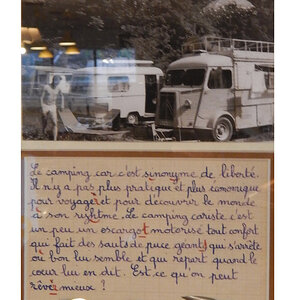 Le camping car c'est sinonyme de liberté.
Il n'y a pas plus pratique et plus économique
pour voyager et pour découvrir le monde
à son rythme. Le camping cariste c'est
un peu un escargot motorisé tout confort
qui fait des sauts de puce géants qui s'arrête
où bon lui semble et qui repart quand le
cœur lui en dit. Est ce qu'on peut
rêver mieux ?